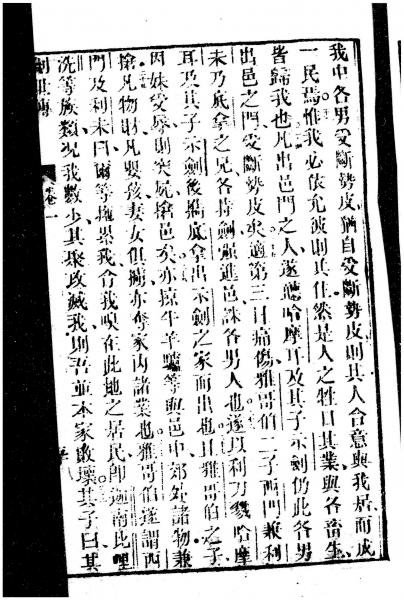 我中各男受斷勢皮猶自受斷勢皮則其人合意與我居而成
一民焉惟我必依允彼則其住然是人之牲口其業與各畜生
皆歸我也凡出邑門之人遂聽哈摩耳及其子示劍仍此各男
出邑之門受斷勢皮矣適第三日痛傷雅哥伯二子西門兼利
未乃底拿之兄各持劍強進邑誅各男人也遂以利刀戮哈摩
耳及其子示劍後攜底拿出示劍之家而出也且雅哥伯之子
因妹受辱則突屍搶邑矣亦掠牛羊驢等與邑中郊外諸物兼
搶凡物財凡嬰孩妻女俱擄亦奪家內諸業也雅哥伯遂謂西
門及利未曰爾等拖累我令我嗅在此地之居民即迦南比哩
洗等族類況我數少其聚攻滅我則吾並本家敗壞其子曰其
創世傳
卷一